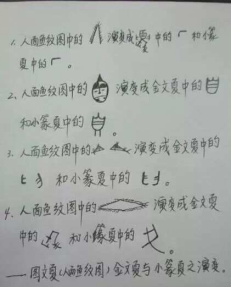 1. 人面鱼纹图中的 演变成 中的 和小篆
夏中的 。
2. 人面鱼纹图中的 演变成金文夏中的
和小篆夏中的 。
3. 人面鱼纹图中的 演变成金文夏中的
和小篆夏中的 。
4. 人面鱼纹图中的 演变成金文夏
中的 和小篆夏中的 。
——图文夏(人面鱼纹图)金文夏与小篆夏之演变。